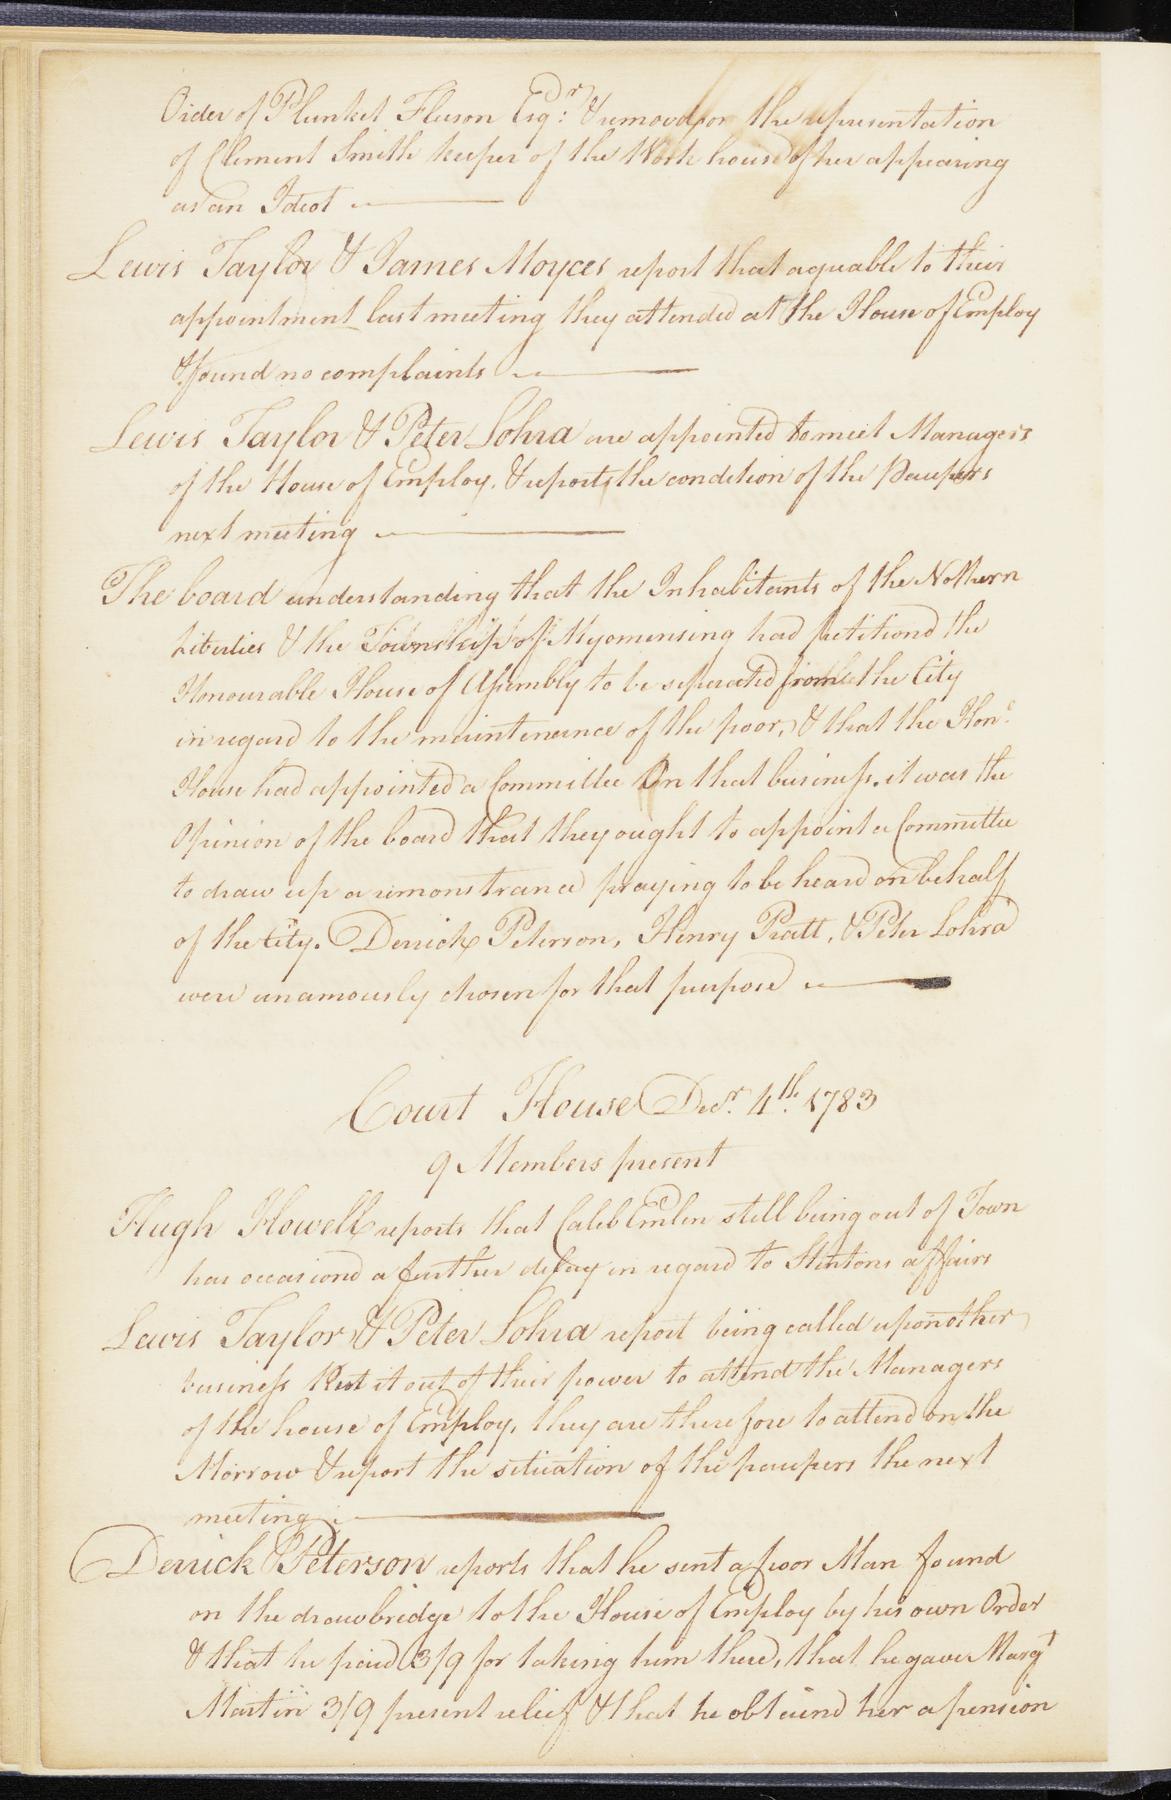 Order of Plunket Fleeson Esqr: & removed, on the representation
of Clement Smith keeper of the Work house of her appearing
as an Idiot
Lewis Taylor & James Moyces report that agreable to their
appointment last meeting they attended at the House of Employ
& found no complaints
Lewis Taylor & Peter Lohra are appointed to meet Managers
of the House of Employ, & report the condition of the Paupers
next meeting
The board understanding that the Inhabitants of the Nothern
Liberties & the Township of Myomensing had petitiond the
Honourable House of Assembly to be seperated from the City
in regard to the maintenance of the poor, & that the Hone.
House had appointed a Committee On that business. it was the
Opinion of the board that they ought to appoint a Committee
to draw up a remonstrance praying to be heard on behalf
of the City. Derrick Peterson, Henry Pratt, & Peter Lohra
were unamously chosen for that purpose
Court House Decr. 4th. 1783
9 Members present
Hugh Howell reports that Caleb Emlen still being out of Town
has occasiond a further delay in regard to Stintons affairs
Lewis Taylor & Peter Lohra report being called upon other
business Put it out of their power to attend the Managers
of the house of Employ, they are therefore to attend on the
Morrow & report the situation of the paupers the next
meeting
Derrick Peterson reports that he sent a poor Man found
on the drawbridge to the House of Employ by his own Order
& that he paid 3/9 for taking him there, that he gave Margt
Martin 3/9 present relief & that he obtaind her a pension